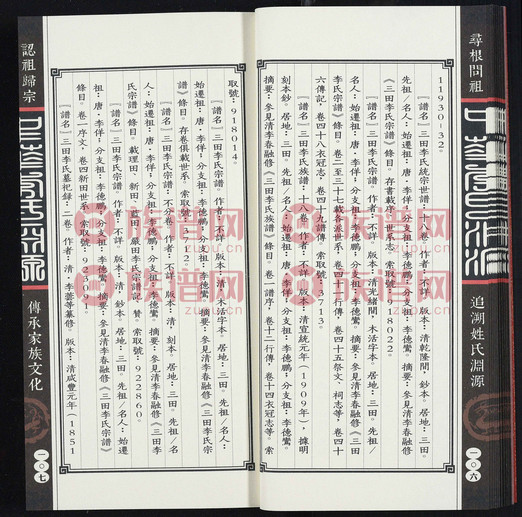 尋根問祖
追溯姓氏淵源
一〇六
11930-32。
〖譜名〗三田李氏統宗世譜:十八卷 作者:不詳 版本:清乾隆間,鈔本。居地:三田。
先祖/名人:始遷祖:唐·李佯;分支祖:李德鵬;分支祖:李德鸞。摘要:參見清李春融修
《三田李氏宗譜》條目。存書載序、世系志。索取號:918022。
〖譜名〗三田李氏宗譜 作者:不詳 版本:清光緒間,木活字本。居地:三田。先祖/名
人:始遷祖:唐·李佯;分支祖:李德鵬;分支祖:李德鸞。摘要:參見清李春融修《三田
李氏宗譜》條目。卷二至三十七載各派世系,卷四十
六傳記,卷四十八衣冠志,卷四十九譜傳。索取號:3713。
〖譜名〗三田李氏族譜:十八卷 作者:不詳 版本:清宣統元年(1909年),據明
刻本鈔。居地:三田。先祖/名人:始遷祖:唐·李佯;分支祖:李德鵬;分支祖:李德鸞。
摘要:參見清李春融修《三田李氏族譜》條目。卷 譜序,卷十二行傳,卷十四衣冠志等。索
取號:918014。
〖譜名〗三田李氏宗譜 作者:不詳 版本:清,木活字本。居地:三田。先祖/名人:
始遷祖:唐·李佯;分支祖:李德鵬;分支祖:李德鸞。摘要:參見清李春融修《三田李氏宗
譜》條目。存卷
〖譜名〗三田李氏宗譜:不分卷 作者:不詳 版本:清,刻本。居地:三田。先祖/名
人:始遷祖:唐·李佯;分支祖:李德鵬;分支祖:李德鸞。摘要:參見清李春融修《三田李
氏宗譜》條目。載理田、新田、嚴田李氏宗譜記、贊。索取號:922860。
〖譜名〗三田李氏宗譜 作者:不詳 版本:清,鈔本。居地:三田。先祖/名人:始遷
祖:唐·李佯;分支祖:李德鵬;分支祖:李德鸞。摘要:參見清李春融修《三田李氏宗譜》
條目。卷 序文,卷四新田世系。索取號:
〖譜名〗三田李氏墓祀録:二卷 作者:清·李 纂修 版本:清咸豐元年(1851
認祖歸宗
傳承家族文化
一〇七